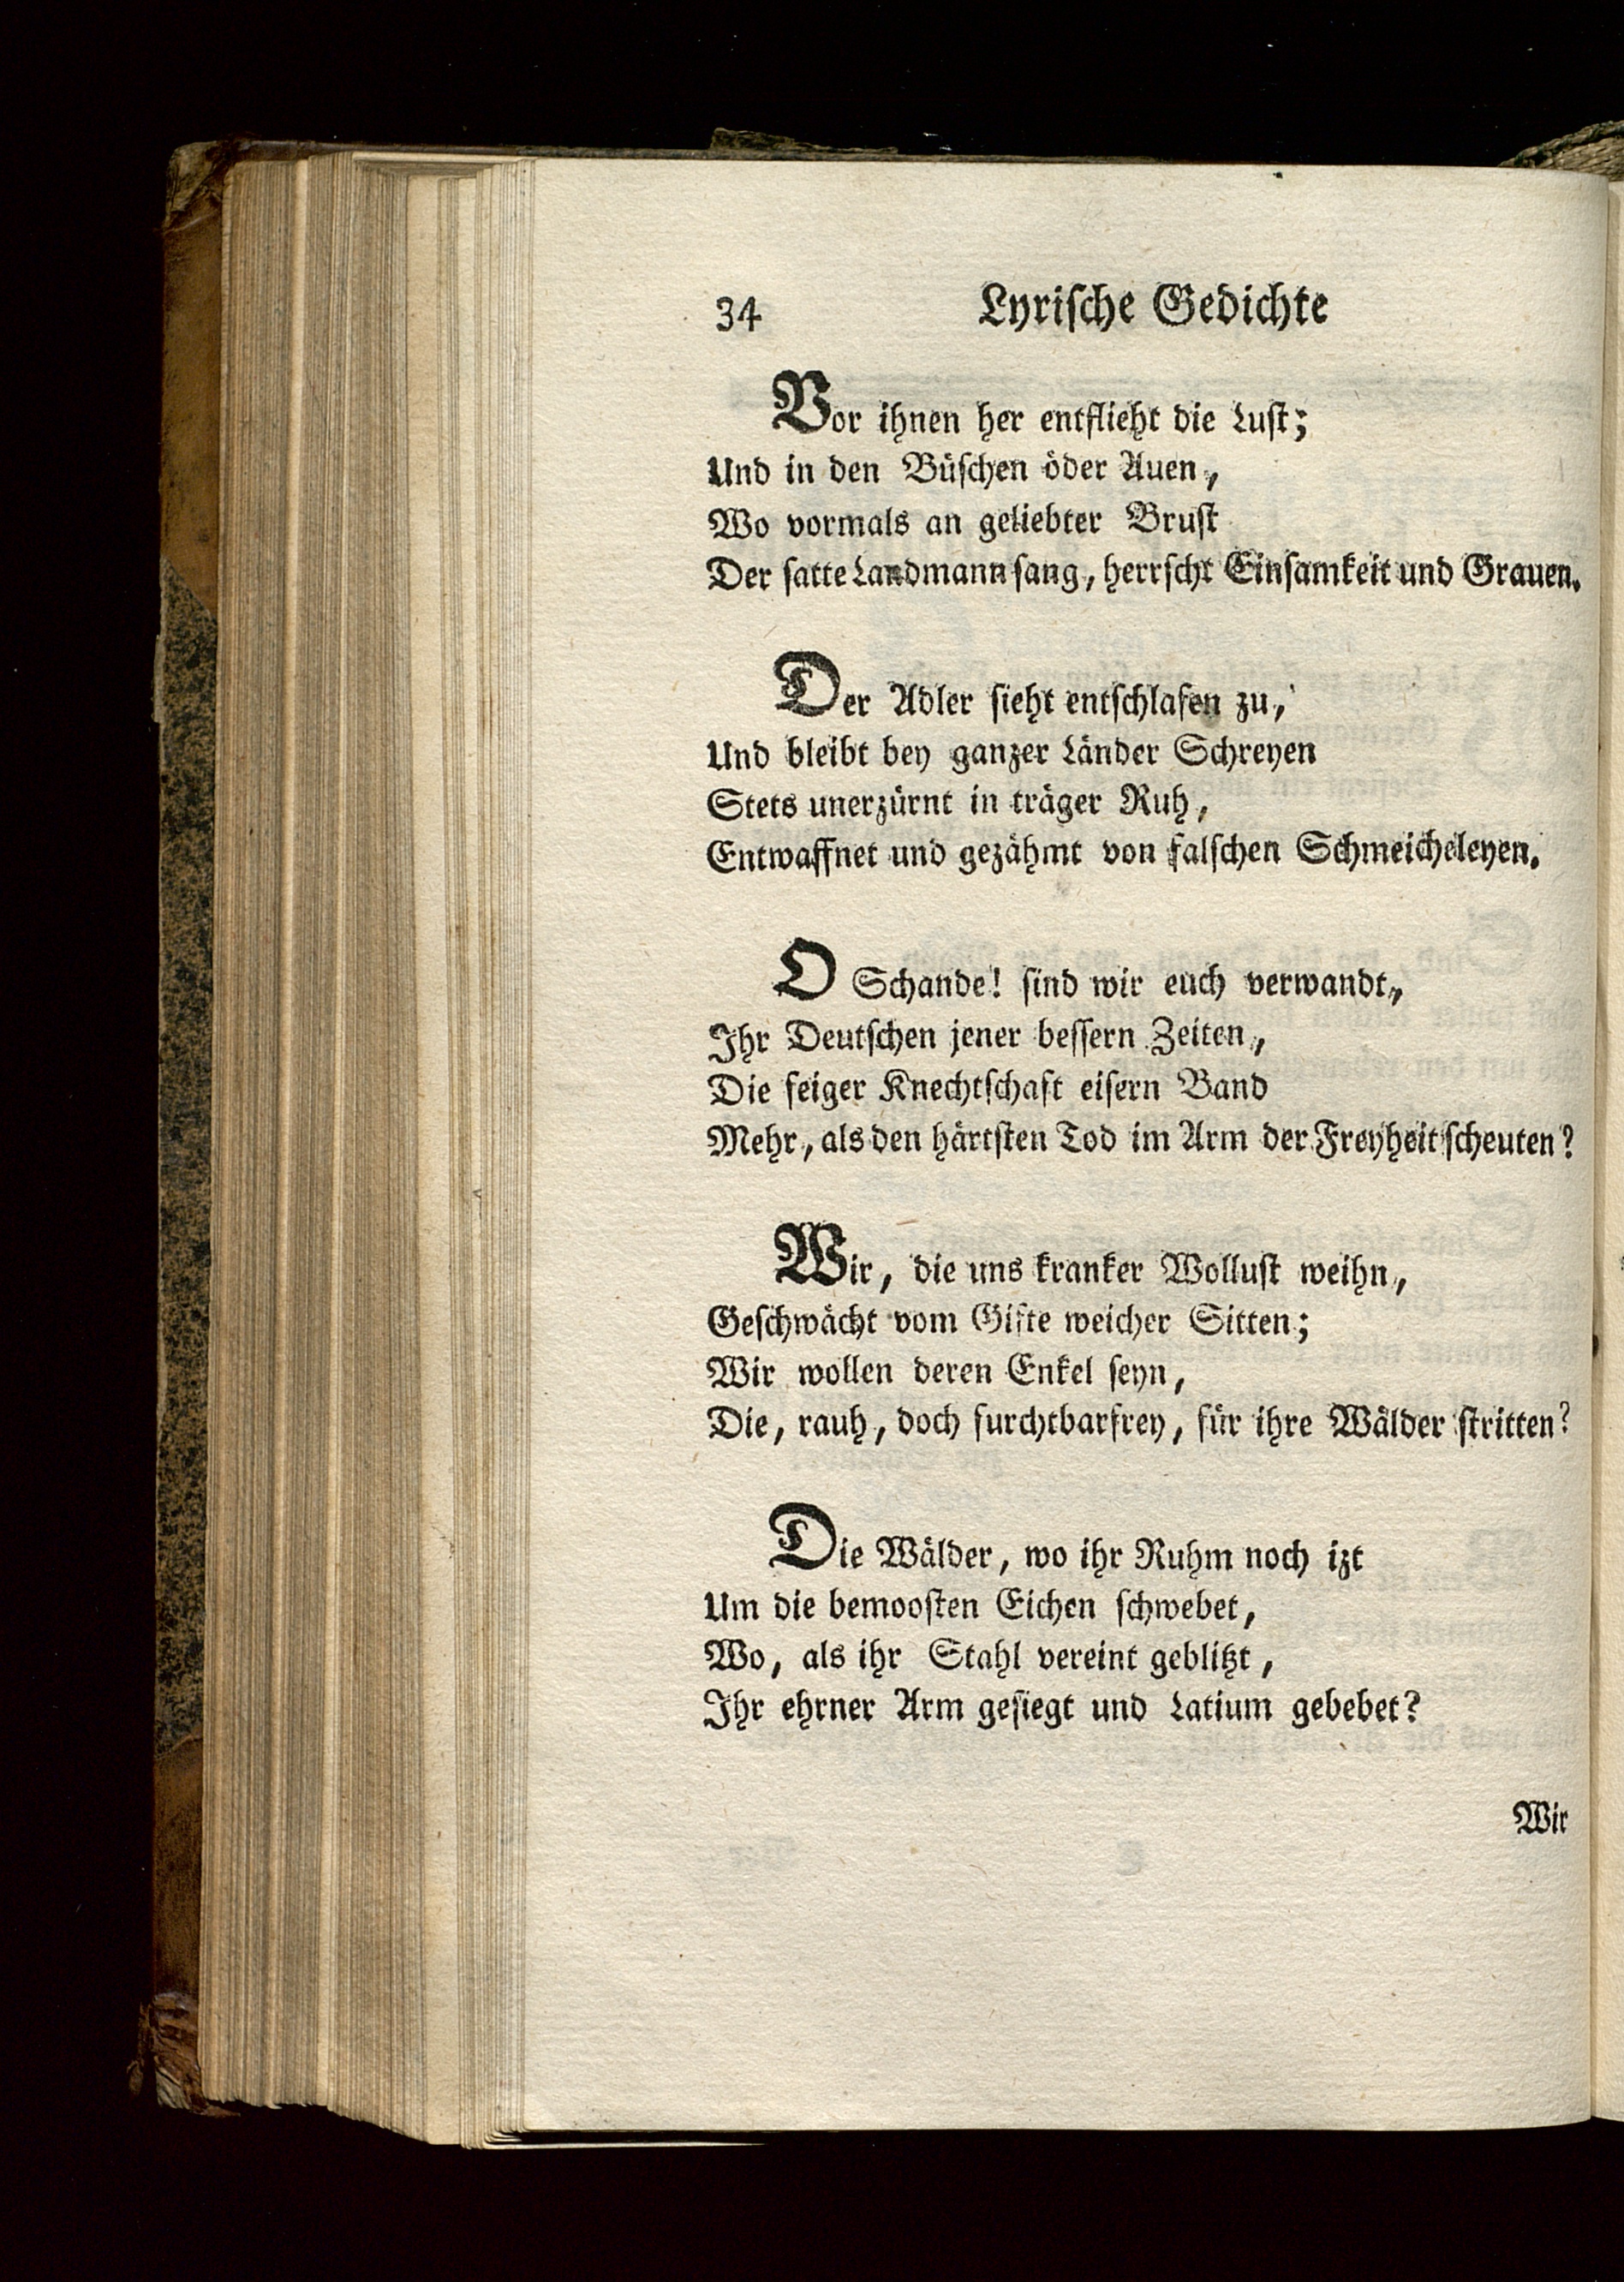 34 Lyriſche Gedichte
Vor ihnen her entflieht die Luſt;
Und in den Büſchen öder Auen,
Wo vormals an geliebter Bruſt
Der ſatte Landmann ſang, herrſcht Einſamkeit und Grauen.
Der Adler ſieht entſchlafen zu,
Und bleibt bey ganzer Länder Schreyen
Stets unerzürnt in träger Ruh,
Entwaffnet und gezähmt von falſchen Schmeicheleyen.
O Schande! ſind wir euch verwandt,
Ihr Deutſchen jener beſſern Zeiten,
Die feiger Knechtſchaft eiſern Band
Mehr, als den härtſten Tod im Arm der Freyheit ſcheuten?
Wir, die uns kranker Wolluſt weihn,
Geſchwächt vom Gifte weicher Sitten;
Wir wollen deren Enkel ſeyn,
Die, rauh, doch furchtbarfrey, für ihre Wälder ſtritten?
Die Wälder, wo ihr Ruhm noch izt
Um die bemooſten Eichen ſchwebet,
Wo, als ihr Stahl vereint geblitzt,
Ihr ehrner Arm geſiegt und Latium gebebet?
Wir